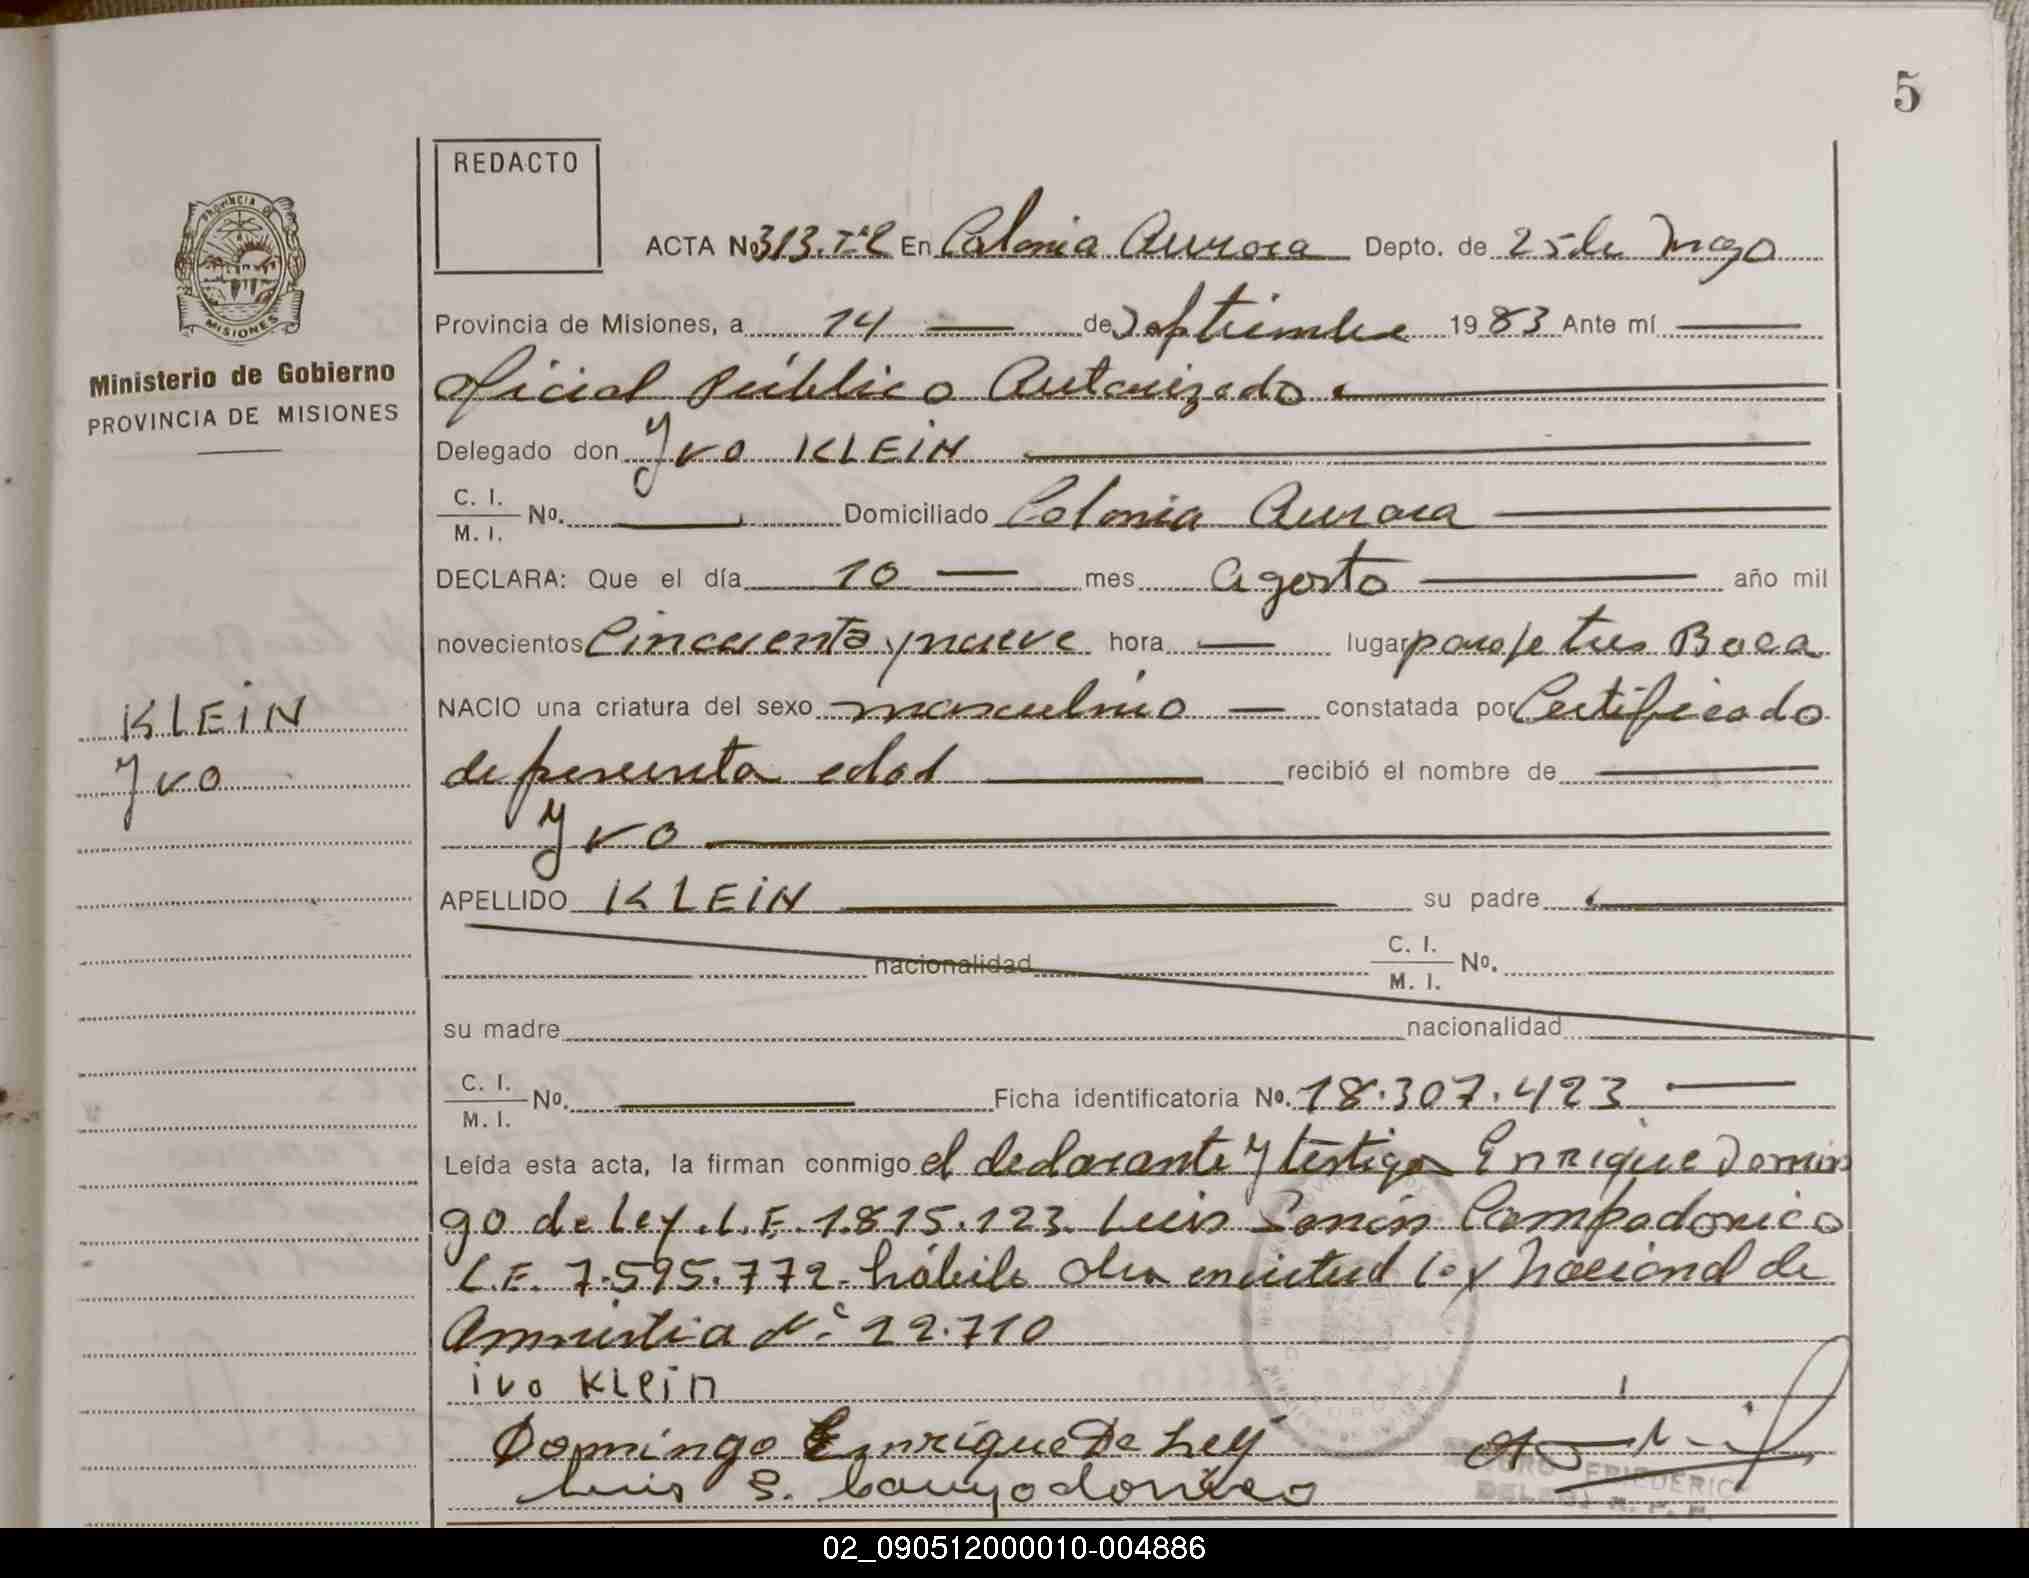 5
REDACTO
PROVINCIA DE
MISIONES
Ministerio de Gobierno
PROVINCIA DE MISIONES
ACTA No 313. Tº2 En Colonia Aurora Depto. de 25 de Mayo
Provincia de Misiones, a 14 de Septiembre 1983 Ante mí
Oficial Público Autorizado
Delegado don Yvo KLEIN
C. I.
M. I. No. Domiciliado Colonia Aurora
DECLARA: Que el día 10 mes Agosto año mil
novecientos Cincuenta y nueve hora lugar paraje tres Boca
KLEIN
Yvo
NACIO una criatura del sexo masculino constatada por Certificado
de presunta edad recibió el nombre de
Yvo
APELLIDO KLEIN su padre
nacionalidad C. I.
M. I. No.
su madre nacionalidad
C. I.
M. I. No. Ficha identificatoria No. 18.307.423
Leída esta acta, la firman conmigo el declarante y testigos Enrique Domin
go de Ley. L.E. 1.815.123. Luis Campodonico
L.E. 7.595.772. hábiles en virtud Ley Nacional de
Amnistia Nº 22.710
ivo Klein
Domingo Enrique De Ley
Luis S. Campodonico
FRIEDERIC